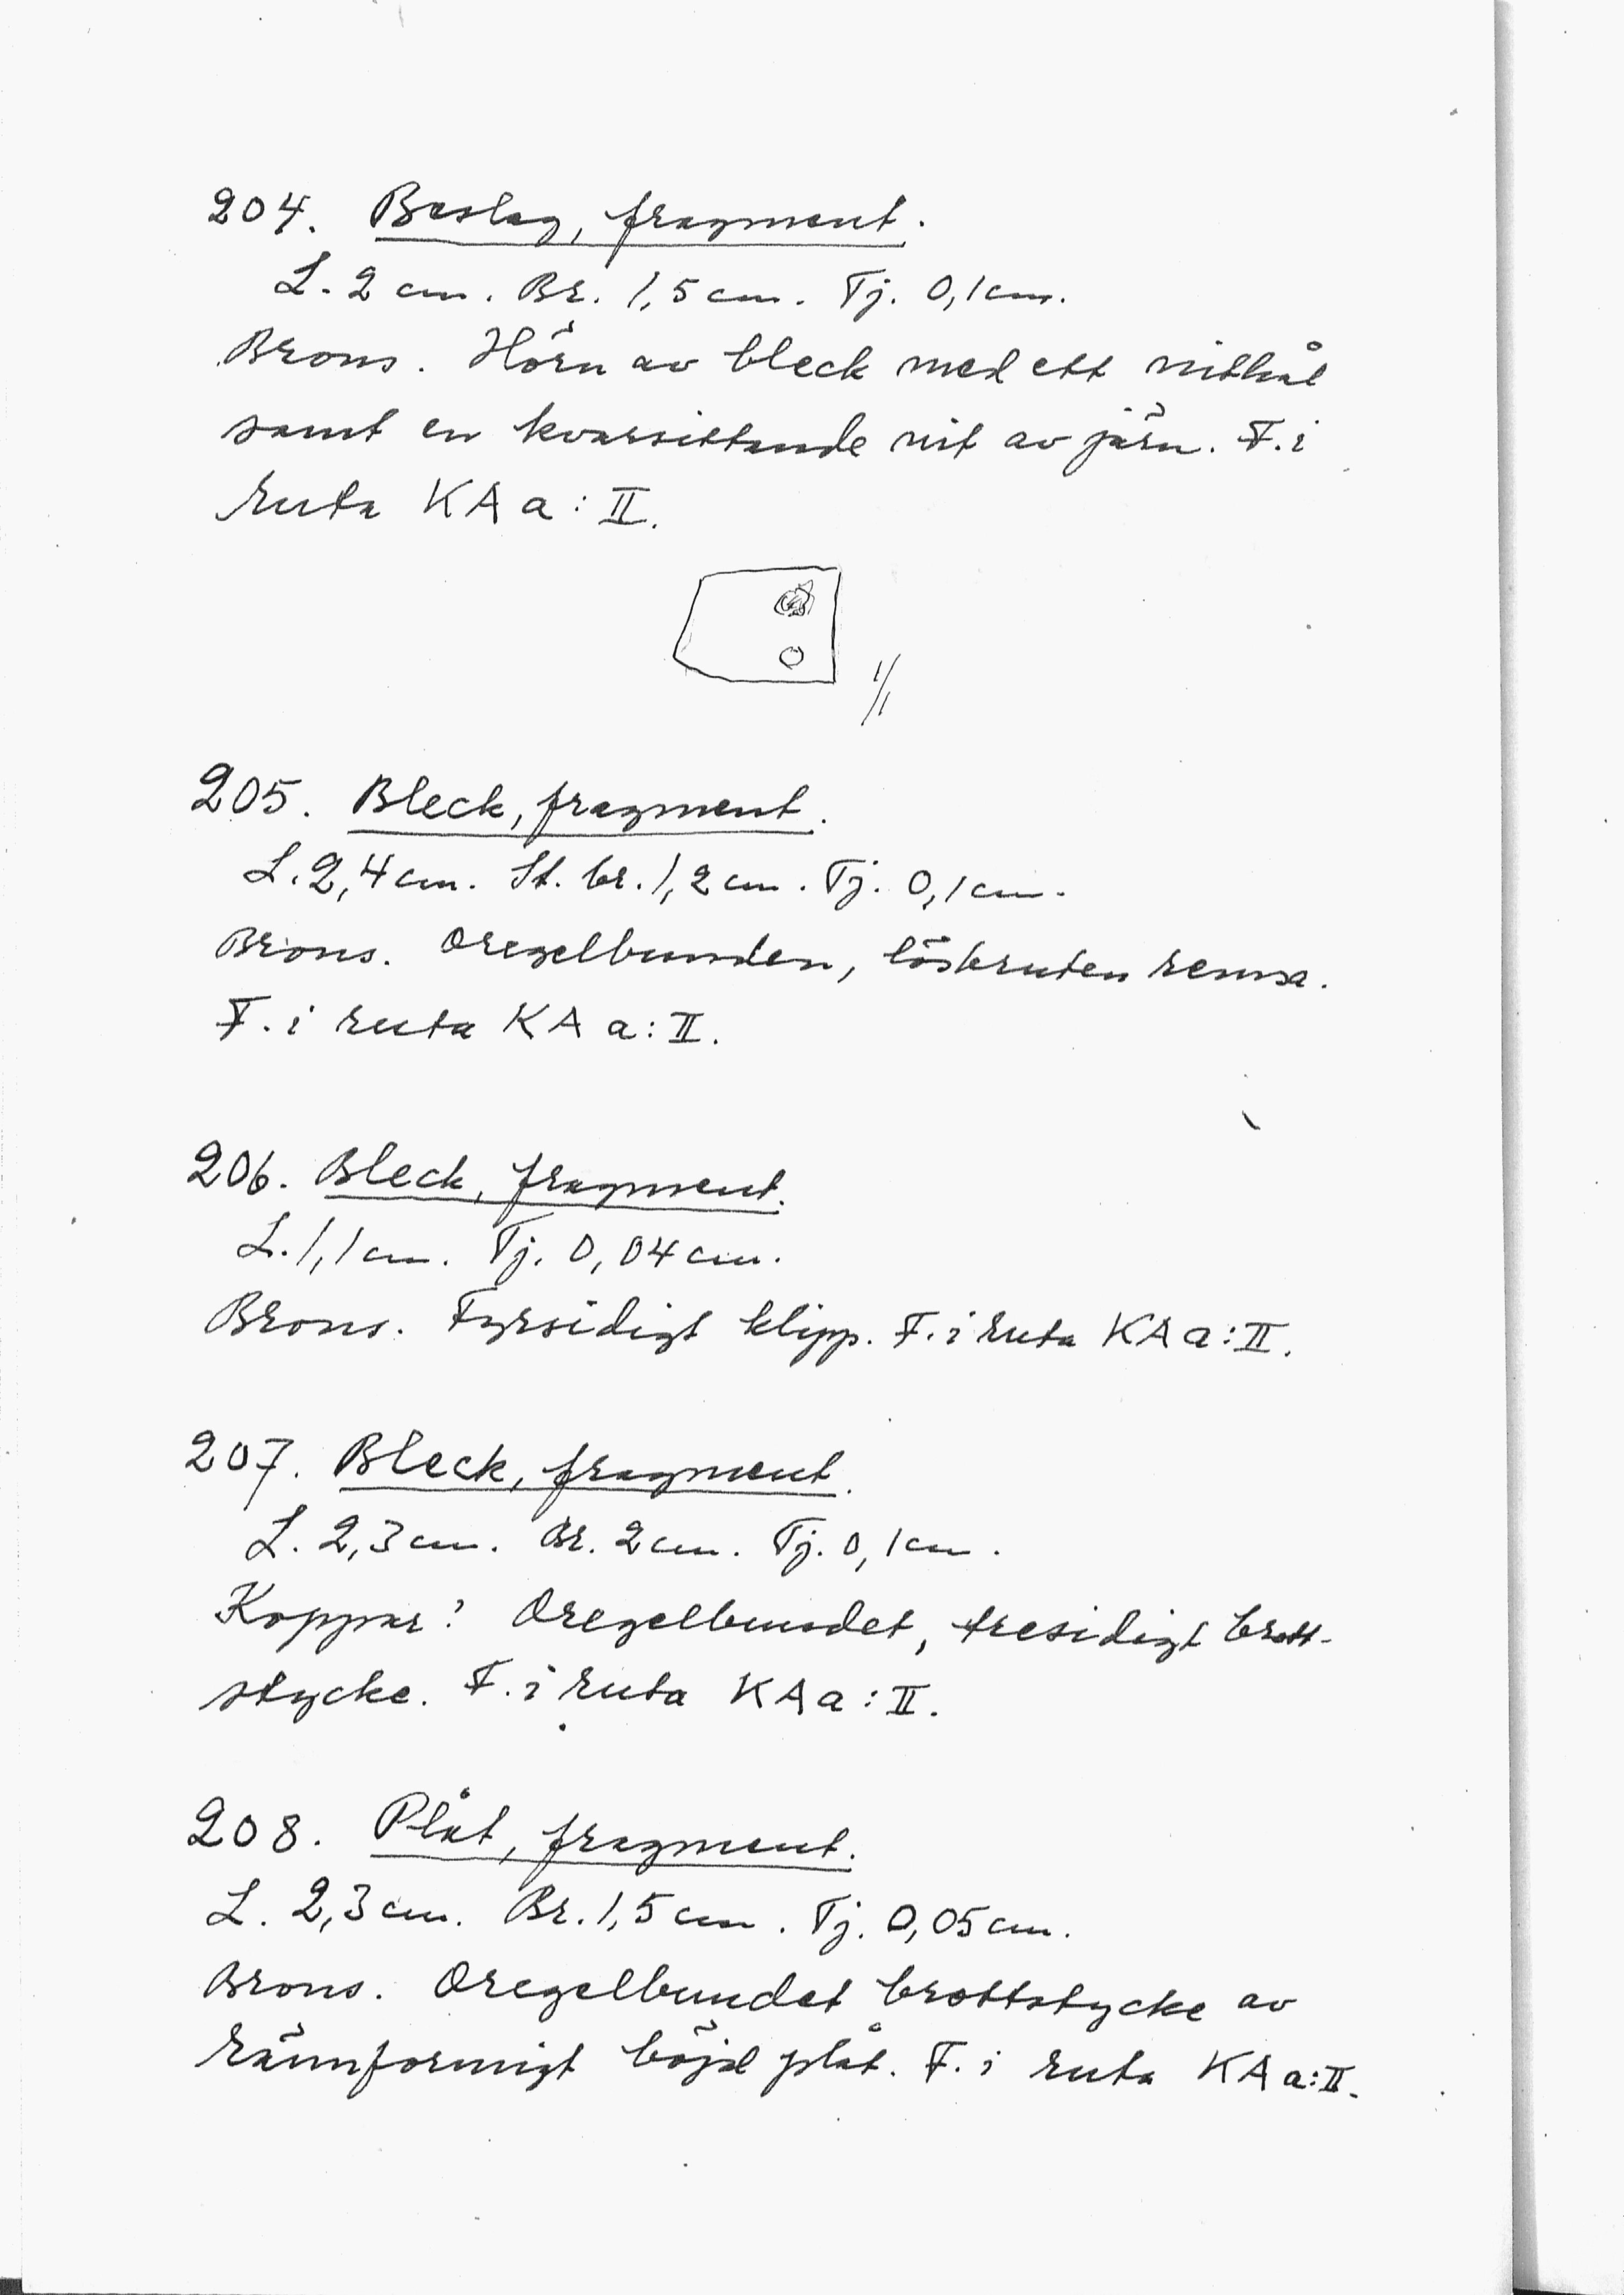 204. Beslag, fragment.
L. 2 cm. Br. 1,5 cm. Tj. 0,1 cm.
Brons. Hörn av bleck med ett nithål
samt en kvarsittande nit av järn. F. i
ruta KA a : II.
1/1
205. Bleck, fragment.
L. 2,4 cm. St. br. 1,2 cm. Tj. 0,1 cm.
Brons. Oregelbunden, lösbruten remsa.
F. i ruta KA a : II.
206. Bleck, fragment.
L. 1,1 cm. Tj. 0,04 cm.
Brons. Fyrsidigt klipp. F. i ruta KA a : II.
207. Bleck, fragment.
L. 2,3 cm. Br. 2 cm. Tj. 0,1 cm.
Koppar? Oregelbundet, tresidigt brott-
stycke. F. i ruta KA a : II.
208. Plåt, fragment.
L. 2,3 cm. Br. 1,5 cm. Tj. 0,05 cm.
Brons. Oregelbundet brottstycke av
rännformigt böjd plåt. F. i ruta KA a : II.